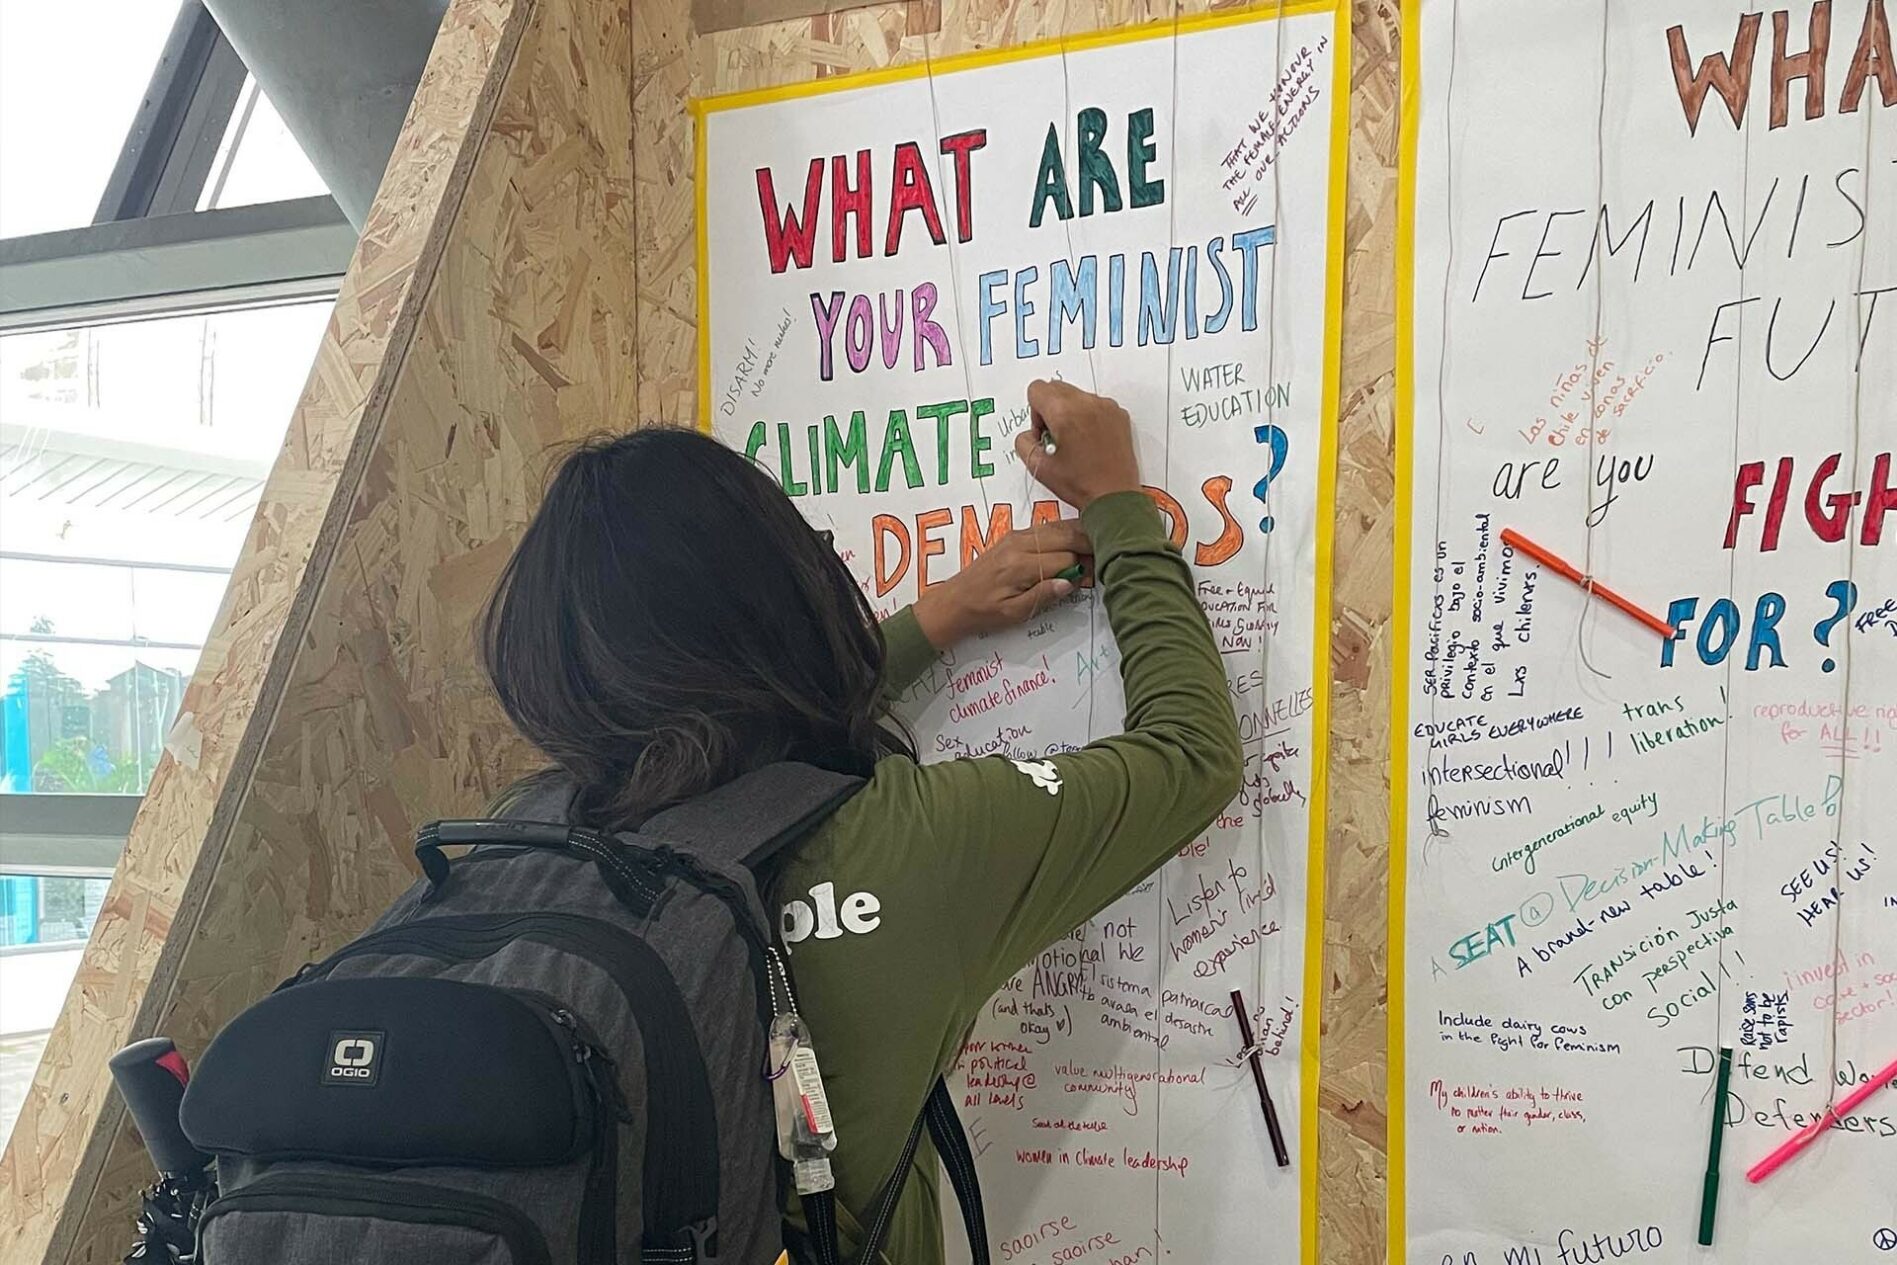 WHAT ARE
YOUR FEMINIST
CLIMATE
DEMANDS?
THAT WE HONOUR
THE FEMALE ENERGY IN
ALL OUR ACTIONS
DISARM!
No more nukes!
WATER
EDUCATION
Urban
Free + Equal
EDUCATION FOR
GIRLS GLOBALLY
NOW!
table.
feminist
climate finance!
Art
Sex
education
globally
Listen to
women's liv'd
experience
not
we
are ANGRY!
(and thats
okay ♡)
sistema patriarcal
ambiental
in political
leadership @
all levels
value multigenerational
community
Seat at the table
women in climate leadership
behind!
saoirse
saoirse
OGIO
ple
WHA
FEMINIS
FUT
are you
FIGH
FOR?
Las niñas de
Chile viven
en zonas
de sacrificio.
SER Pacificas es un
privilegio bajo el
contexto socio-ambiental
en el que vivimos
Lxs chilenxs.
EDUCATE
GIRLS EVERYWHERE
trans
liberation!
reproductive rig
for ALL!!
intersectional!!!
feminism
intergenerational equity
A SEAT @ Decision-Making Table!
A brand-new table!
SEE US!
HEAR US!
TRANSICIÓN JUSTA
con perspectiva
social!!
invest in
care + soc
sector!
Raise sons
not to be
rapists
Include dairy cows
in the fight for feminism
My children's ability to thrive
no matter their gender, class,
or nation.
Defend Wo
Defenders
FREE
en mi futuro